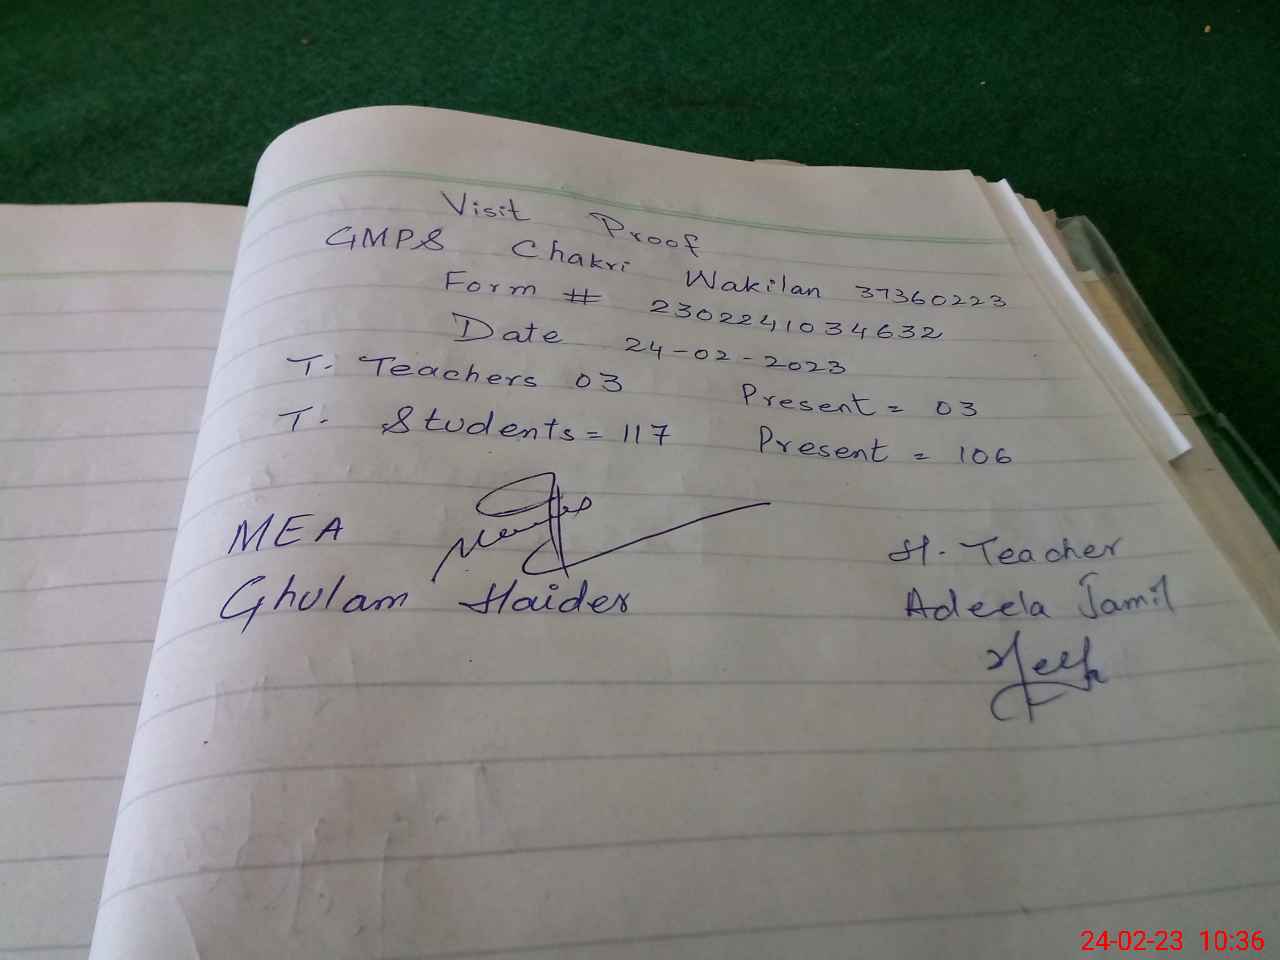 Visit Proof
GMPS Chakri Wakilan 37360223
Form # 2302241034632
Date 24-02-2023
T. Teachers 03 Present = 03
T. Students = 117 Present = 106
MEA
Ghulam Haider
H. Teacher
Adeela Jamil
24-02-23 10:36